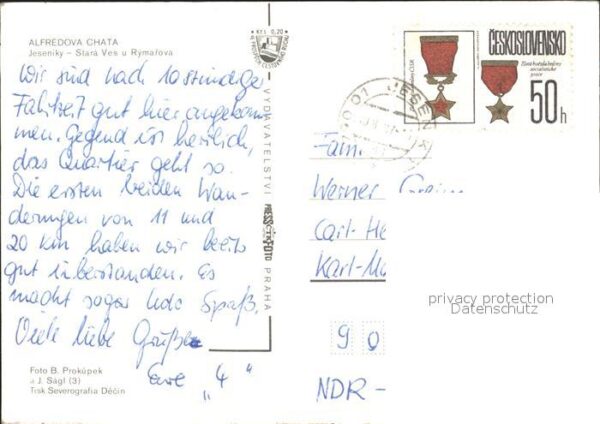 ALFRÉDOVA CHATA
Jeseníky – Stará Ves u Rýmařova
Wir sind nach 10stündiger
Fahrzeit gut hier angekom
men. Gegend ist herrlich,
das Quartier geht so.
Die ersten beiden Wan-
derungen von 11 und
20 km haben wir bereits
gut überstanden. Es
macht sogar Udo Spaß.
Viele liebe Grüße
eure "4"
Foto B. Prokůpek
a J. Ságl (3)
Tisk Severografia Děčín
Kčs 0,20
VYDAVATELSTVÍ
PRESSFOTO
PRAHA
ČESKOSLOVENSKO
50h
Fam.
Werner
Carl-He
Karl-Ma
privacy protection
Datenschutz
9 0
NDR -